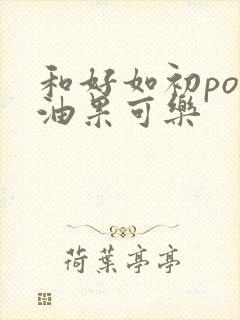 和好如初po
油果可樂
荷葉亭亭